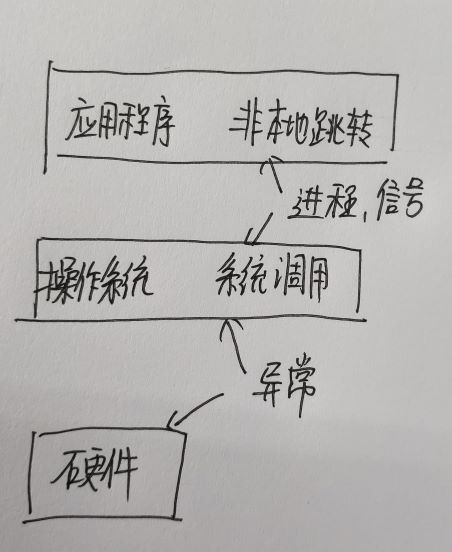 应用程序 非本地跳转
进程,信号
操作系统 系统调用
异常
硬件